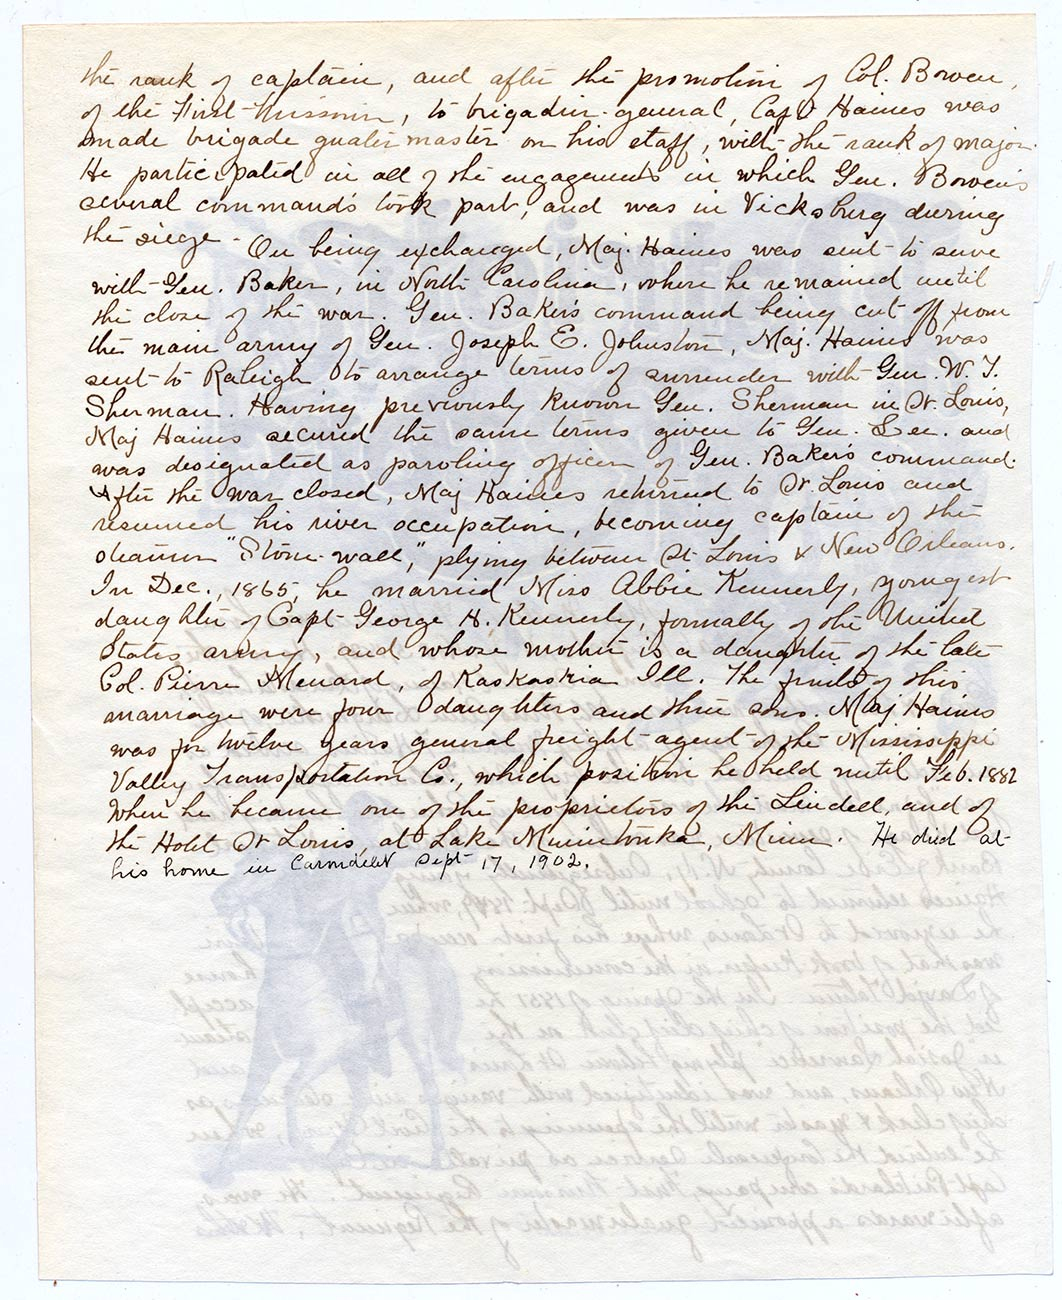 the rank of captain, and after the promotion of Col. Bowen,
of the First Missouri, to brigadier-general, Capt Haines was
made brigade quatermaster on his staff, with the rank of major.
He participated in all of the engagements in which Gen. Bowen's
several commands took part, and was in Vicksburg during
the siege - On being exchanged, Maj. Haines was sent to serve
with Gen. Baker, in North Carolina, where he remained until
the close of the war. Gen. Baker's command being cut off from
the main army of Gen. Joseph E. Johnston, Maj. Haines was
sent to Raleigh to arrange terms of surrender with Gen. W. T.
Sherman. Having previously known Gen. Sherman in St. Louis,
Maj Haines secured the same terms given to Gen. Lee. and
was designated as paroling officer of Gen. Baker's command.
After the war closed, Maj Haines returned to St. Louis and
resumed his river occupation, becoming captain of the
steamer "Stone-wall," plying between St. Louis & New Orleans.
In Dec., 1865, he married Miss Abbie Kennerly, youngest
daughter of Capt George H. Kennerly, formally of the United
States army, and whose mother is a daughter of the late
Col. Pierre Menard, of Kaskaskia Ill. The fruits of this
marriage were four daughters and three sons. Maj. Haines
was for twelve years general freight agent of the Mississippi
Valley Transportation Co., which position he held until Feb. 1882
When he became one of the proprietors of the Lindell, and of
the Hotel St Louis, at Lake Minnetonka, Minn. He died at
his home in Carondelet Sept 17, 1902.